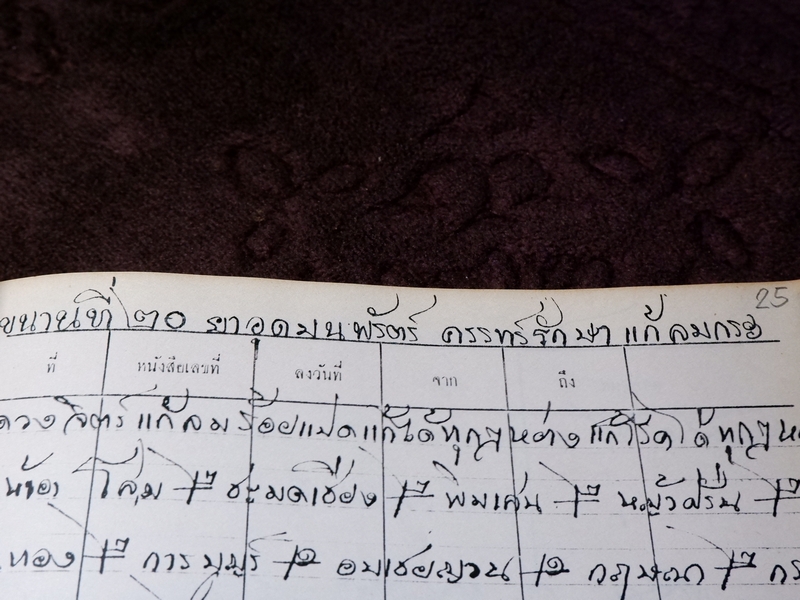 25
ขนานที่ ๒๐ ยาอุดมนพรัตร์ ครรทร์รักษา แก้ลมกระ
ที่ หนังสือเลขที่ ลงวันที่ จาก ถึง
ดวงจิตร์ แก้ลมร้อยแปด แก้ได้ทุกๆ หย่าง แก้โรคได้ทุกๆ
โสม ชะมดเชียง พิมเสน หญ้าฝรั่น
ทอง การบูร ๑ อบเชยญวน ๑ กฤษณา